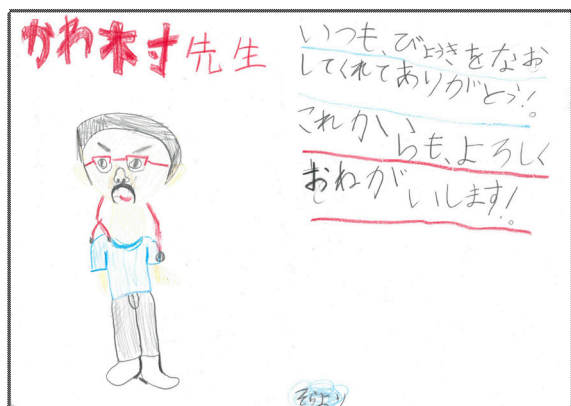 かわ村先生
いつも、びょうきをなお
してくれてありがとう!
これから
らも、よろしく
おねが
いします!
そらより